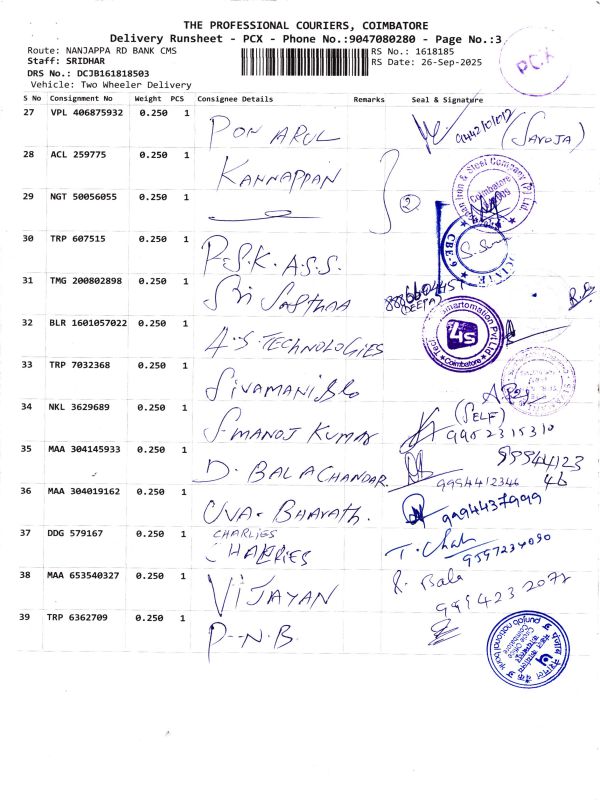 THE PROFESSIONAL COURIERS, COIMBATORE
Delivery Runsheet - PCX - Phone No.:9047080280 - Page No.:3
Route: NANJAPPA RD BANK CMS
RS No.: 1618185
Staff: SRIDHAR
RS Date: 26-Sep-2025
DRS No.: DCJB161818503
Vehicle: Two Wheeler Delivery
PCX
S No Consignment No Weight PCS Consignee Details Remarks Seal & Signature
27 VPL 406875932 0.250 1 PON ARUL (SAROJA)
28 ACL 259775 0.250 1 KANNAPPAN
29 NGT 50056055 0.250 1 2
30 TRP 607515 0.250 1 P.S.K. A.S.S.
31 TMG 200802898 0.250 1 Sri Sasthaa
32 BLR 1601057022 0.250 1 4-S TECHNOLOGIES
4s
Coimbatore
33 TRP 7032368 0.250 1 Sivamani
34 NKL 3629689 0.250 1 S. MANOJ KUMAR (SELF) 9952315310
35 MAA 304145933 0.250 1 D. BALACHANDAR 9994412346
36 MAA 304019162 0.250 1 UVA- Bharath. 9994437999
37 DDG 579167 0.250 1 CHARLIES
CHARLIES 9597234090
38 MAA 653540327 0.250 1 VIJAYAN Bala
39 TRP 6362709 0.250 1 P-N-B.
punjab national bank